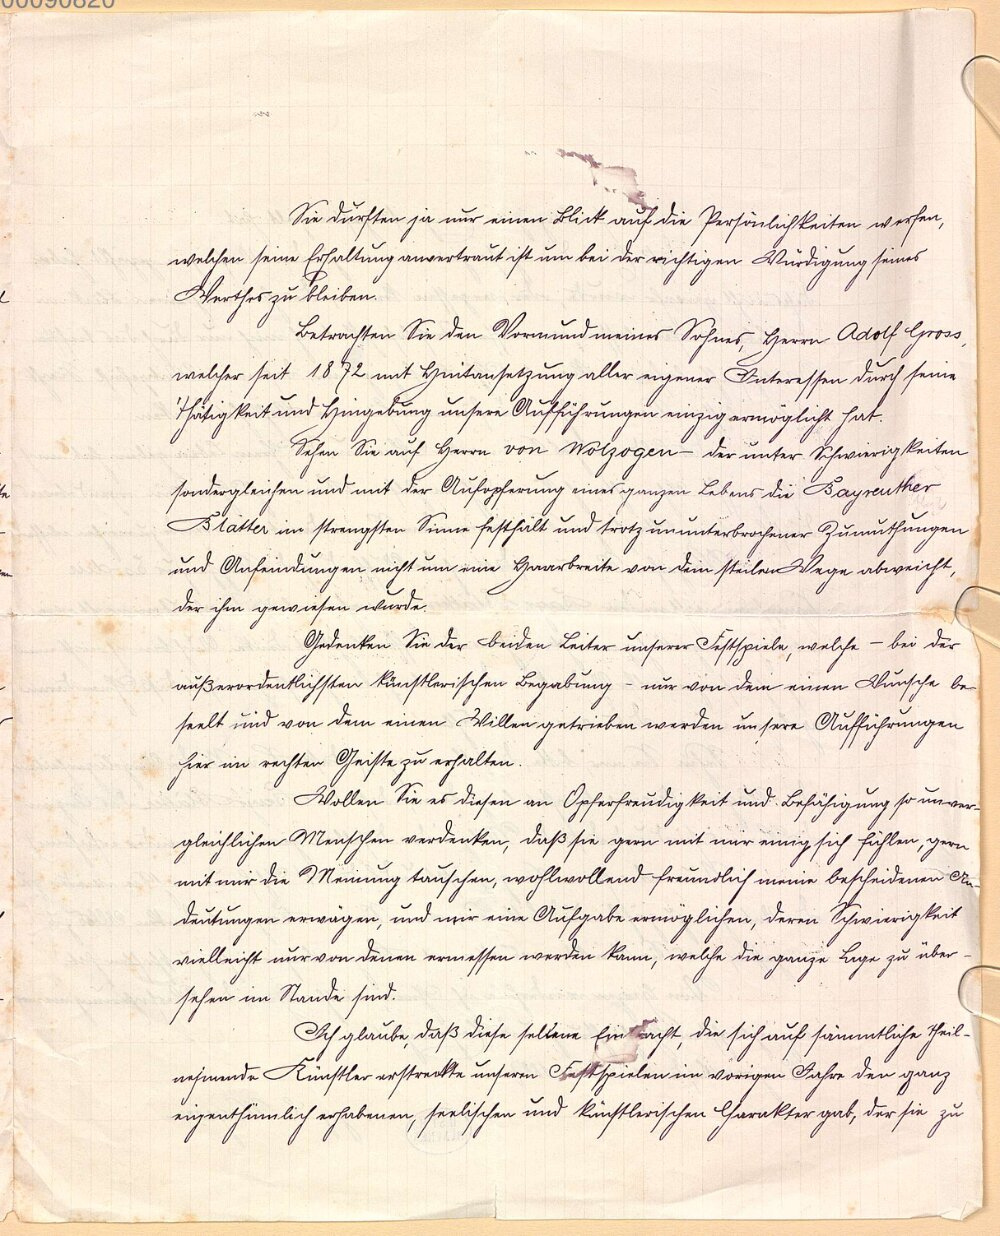 00090820
Sie dürften ja nur einen Blick auf die Persönlichkeiten werfen,
welchen seine Erhaltung anvertraut ist um bei der richtigen Würdigung seines
Werthes zu bleiben.
Betrachten Sie den Vormund meines Sohnes, Herrn Adolf Gross,
welcher seit 1872 mit Hintansetzung aller eigener Interessen durch seine
Thätigkeit und Hingebung unsere Aufführungen einzig ermöglicht hat.
Sehen Sie auf Herrn von Wolzogen – der unter Schwierigkeiten
sondergleichen und mit der Aufopferung eines ganzen Lebens die Bayreuther
Blätter im strengsten Sinne festhält und trotz ununterbrochener Zumuthungen
und Anfeindungen nicht um eine Haarbreite von dem steilen Wege abweicht,
der ihm gewiesen wurde.
Gedenken Sie der beiden Leiter unserer Festspiele, welche – bei der
außerordentlichsten künstlerischen Begabung – nur von dem einen Wunsche be-
seelt und von dem einen Willen getrieben werden unsere Aufführungen
hier im rechten Geiste zu erhalten.
Wollen Sie es diesen an Opferfreudigkeit und Befähigung so unver-
gleichlichen Menschen verdenken, daß sie gern mit mir einig sich fühlen, gern
mit mir die Meinung tauschen, wohlwollend freundlich meine bescheidenen An-
deutungen erwägen, und mir eine Aufgabe ermöglichen, deren Schwierigkeit
vielleicht nur von denen ermessen werden kann, welche die ganze Lage zu über-
sehen im Stande sind.
Ich glaube, daß diese seltene Eintracht, die sich auf sämmtliche theil-
nehmende Künstler erstreckte unseren Festspielen im vorigen Jahre den ganz
eigenthümlich erhabenen, seelischen und künstlerischen Charakter gab, der sie zu